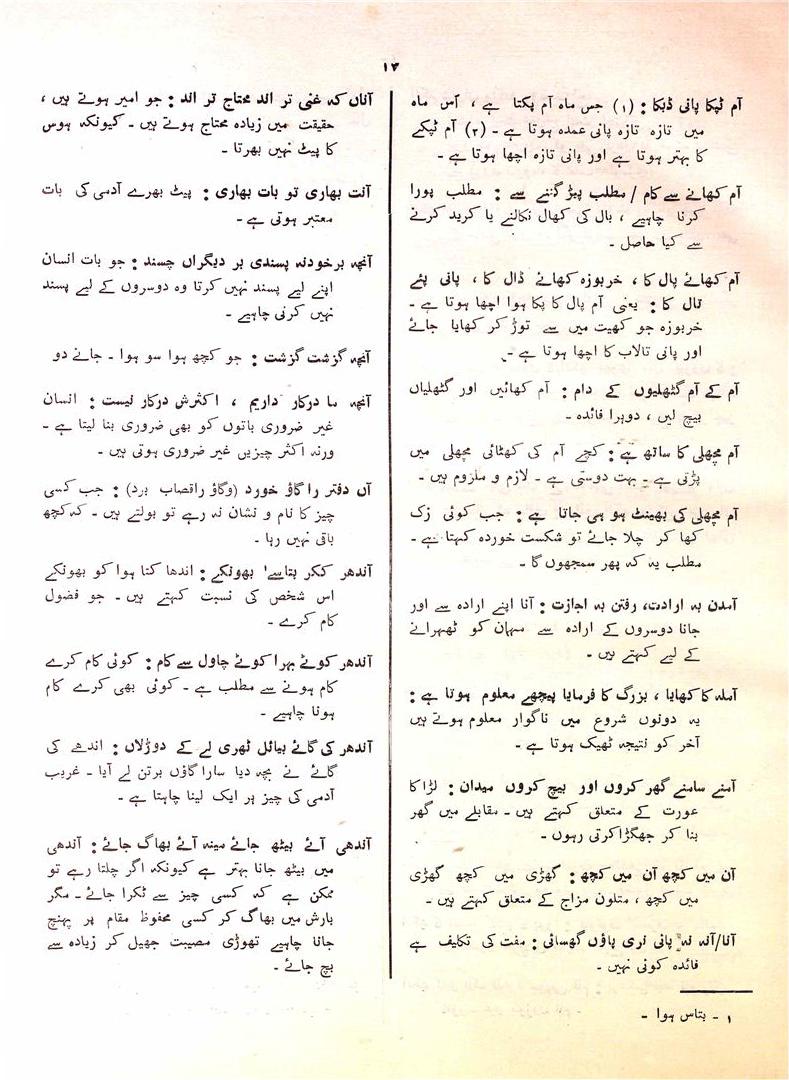 ۱۴
آم ٹپکا پانی ڈبکا : (۱) جس ماہ آم پکتا ہے ، اُس ماہ
میں تازہ تازہ پانی عمدہ ہوتا ہے ۔ (۲) آم ٹپکے
کا بہتر ہوتا ہے اور پانی تازہ اچھا ہوتا ہے ۔
آم کھانے سے کام / مطلب پیڑ گننے سے : مطلب پورا
کرنا چاہیے ، بال کی کھال نکالنے یا کرید کرنے
سے کیا حاصل ۔
آم کھائے پال کا ، خربوزہ کھائے ڈال کا ، پانی پئے
تال کا : یعنی آم پال کا پکا ہوا اچھا ہوتا ہے ۔
خربوزہ جو کھیت میں سے توڑ کر کھایا جائے
اور پانی تالاب کا اچھا ہوتا ہے ۔
آم کے آم گٹھلیوں کے دام : آم کھائیں اور گٹھلیاں
بیچ لیں ، دوہرا فائدہ ۔
آم مچھلی کا ساتھ ہے : کچے آم کی کھٹائی مچھلی میں
پڑتی ہے ۔ بہت دوستی ہے ۔ لازم و ملزوم ہیں ۔
آم مچھلی کی بھینٹ ہو ہی جاتا ہے : جب کوئی زک
کھا کر چلا جائے تو شکست خوردہ کہتا ہے ۔
مطلب یہ کہ پھر سمجھوں گا ۔
آمدن بہ ارادت، رفتن بہ اجازت : آنا اپنے ارادہ سے اور
جانا دوسروں کے ارادہ سے مہمان کو ٹھہرانے
کے لیے کہتے ہیں ۔
آملہ کا کھایا ، بزرگ کا فرمایا پیچھے معلوم ہوتا ہے :
یہ دونوں شروع میں ناگوار معلوم ہوتے ہیں
آخر کو نتیجہ ٹھیک ہوتا ہے ۔
آمنے سامنے گھر کروں اور بیچ کروں میدان : لڑاکا
عورت کے متعلق کہتے ہیں ۔ مقابلے میں گھر
بنا کر جھگڑا کرتی رہوں ۔
آن میں کچھ آن میں کچھ : گھڑی میں کچھ گھڑی
میں کچھ ، متلون مزاج کے متعلق کہتے ہیں ۔
آنا/آنہ نہ پانی نری پاؤں گھسائی : مفت کی تکلیف ہے
فائدہ کوئی نہیں ۔
۱ ۔ بتاس ہوا ۔
آناں کہ غنی تر اند محتاج تر اند : جو امیر ہوتے ہیں ،
حقیقت میں زیادہ محتاج ہوتے ہیں ۔ کیونکہ ہوس
کا پیٹ نہیں بھرتا ۔
آنت بھاری تو بات بھاری : پیٹ بھرے آدمی کی بات
معتبر ہوتی ہے ۔
آنچہ برخودنہ پسندی بر دیگراں چسند : جو بات انسان
اپنے لیے پسند نہیں کرتا وہ دوسروں کے لیے پسند
نہیں کرنی چاہیے ۔
آنچہ گزشت گزشت : جو کچھ ہوا سو ہوا ۔ جانے دو
آنچہ ما درکار داریم ، اکثرش درکار نیست : انسان
غیر ضروری باتوں کو بھی ضروری بنا لیتا ہے ۔
ورنہ اکثر چیزیں غیر ضروری ہوتی ہیں ۔
آں دفتر را گاؤ خورد (وگاؤ راقصاب برد) : جب کسی
چیز کا نام و نشان نہ رہے تو بولتے ہیں ۔ کہ کچھ
باقی نہیں رہا ۔
آندھر ککر بتاسے۱ بھونکے : اندھا کتا ہوا کو بھونکے
اس شخص کی نسبت کہتے ہیں ۔ جو فضول
کام کرے ۔
آندھر کوٹے بہرا کوٹے چاول سے کام : کوئی کام کرے
کام ہونے سے مطلب ہے ۔ کوئی بھی کرے کام
ہونا چاہیے ۔
آندھر کی گائے بیائل ٹھری لے کے دوڑلاں : اندھے کی
گائے نے بچہ دیا سارا گاؤں برتن لے آیا ۔ غریب
آدمی کی چیز ہر ایک لینا چاہتا ہے ۔
آندھی آئے بیٹھ جائے مینہ آئے بھاگ جائے : آندھی
میں بیٹھ جانا بہتر ہے کیونکہ اگر چلتا رہے تو
ممکن ہے کہ کسی چیز سے ٹکرا جائے ۔ مگر
بارش میں بھاگ کر کسی محفوظ مقام پر پہنچ
جانا چاہیے تھوڑی مصیبت جھیل کر زیادہ سے
بچ جائے ۔